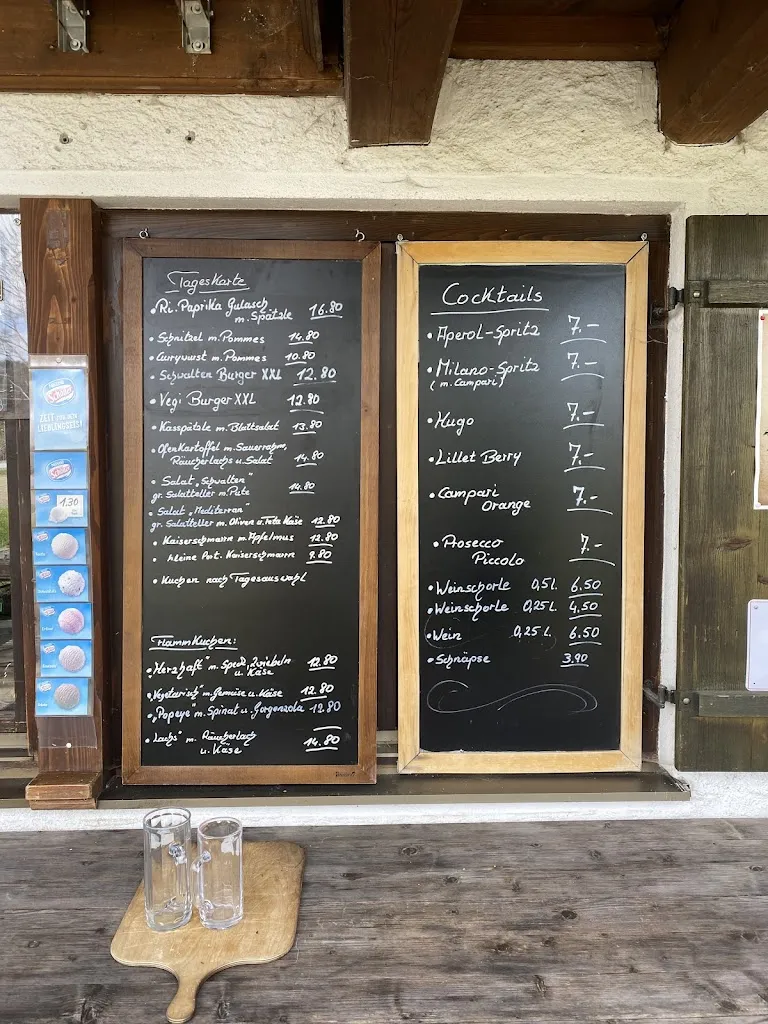 Tageskarte
• Ri. Paprika Gulasch
m. Spätzle 16.80
• Schnitzel m. Pommes 14.80
• Currywurst m. Pommes 10.80
• Schwalten Burger XXL 12.80
• Vegi Burger XXL 12.80
• Kässpätzle m. Blattsalat 13.80
• Ofenkartoffel m. Sauerrahm,
Räucherlachs u. Salat 14.80
• Salat „Schwalten"
gr. Salatteller m. Pute 14.80
• Salat „Mediterran"
gr. Salatteller m. Oliven u. Feta Käse 12.80
• Kaiserschmarrn m. Apfelmus 12.80
• kleine Port. Kaiserschmarrn 9.80
• Kuchen nach Tagesauswahl
Flammkuchen:
• „Herzhaft" m. Speck, Zwiebeln
u. Käse 12.80
• „Vegetarisch" m. Gemüse u. Käse 12.80
• „Popeye" m. Spinat u. Gorgonzola 12.80
• „Lachs" m. Räucherlachs
u. Käse 14.80
Cocktails
• Aperol-Spritz 7.-
• Milano-Spritz 7.-
(m. Campari)
• Hugo 7.-
• Lillet Berry 7.-
• Campari
Orange 7.-
• Prosecco
Piccolo 7.-
• Weinschorle 0,5 l. 6.50
• Weinschorle 0,25 l. 4.50
• Wein 0,25 l. 6.50
• Schnäpse 3.90
Schöller
ZEIT FÜR DEIN
LIEBLINGSEIS!
1.30